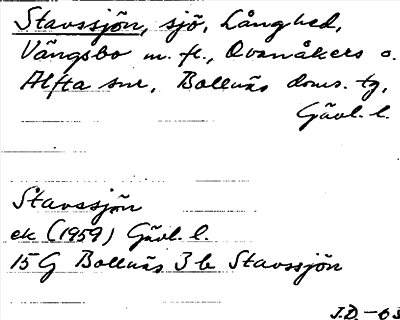 Stavssjön, sjö, Långhed,
Vängsbo m. fl., Ovanåkers o.
Alfta snr, Bollnäs doms. tg,
Gävl. l.
Stavssjön
ek (1959) Gävl. l.
15G Bollnäs 3 b Stavssjön
J.D. -63